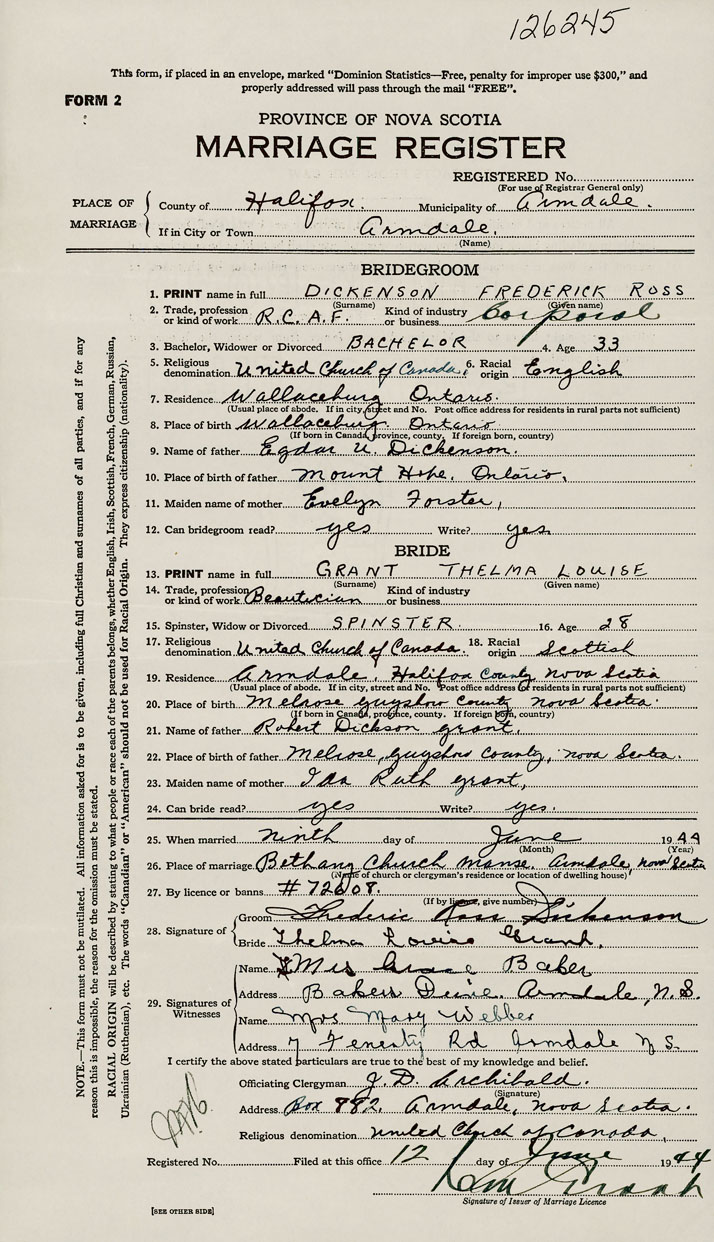 126245
This form, if placed in an envelope, marked "Dominion Statistics—Free, penalty for improper use $300," and
properly addressed will pass through the mail "FREE".
FORM 2
PROVINCE OF NOVA SCOTIA
MARRIAGE REGISTER
REGISTERED No.
(For use of Registrar General only)
PLACE OF MARRIAGE
County of Halifax. Municipality of Armdale.
If in City or Town Armdale.
(Name)
BRIDEGROOM
1. PRINT name in full DICKENSON FREDERICK ROSS
(Surname) (Given name)
2. Trade, profession or kind of work R.C.A.F. Kind of industry or business Corporal
3. Bachelor, Widower or Divorced BACHELOR 4. Age 33
5. Religious denomination United Church of Canada, 6. Racial origin English
7. Residence Wallaceburg Ontario.
(Usual place of abode. If in city, street and No. Post office address for residents in rural parts not sufficient)
8. Place of birth Wallaceburg Ontario
(If born in Canada, province, county. If foreign born, country)
9. Name of father Egdar U. Dickenson.
10. Place of birth of father Mount Hope, Ontario,
11. Maiden name of mother Evelyn Forster,
12. Can bridegroom read? yes Write? yes
BRIDE
13. PRINT name in full GRANT THELMA LOUISE
(Surname) (Given name)
14. Trade, profession or kind of work Beautician Kind of industry or business
15. Spinster, Widow or Divorced SPINSTER. 16. Age 28
17. Religious denomination United Church of Canada. 18. Racial origin Scottish
19. Residence Armdale, Halifax County Nova Scotia
(Usual place of abode. If in city, street and No. Post office address for residents in rural parts not sufficient)
20. Place of birth Melrose Guysboro County Nova Scotia.
(If born in Canada, province, county. If foreign born, country)
21. Name of father Robert Dickson Grant,
22. Place of birth of father Melrose, Guysboro County, Nova Scotia.
23. Maiden name of mother Ida Ruth Grant,
24. Can bride read? yes Write? yes.
25. When married ninth day of June 1944
(Month) (Year)
26. Place of marriage Bethany Church Manse. Armdale, Nova Scotia
(Name of church or clergyman's residence or location of dwelling house)
27. By licence or banns #72608.
(If by licence, give number)
28. Signature of Groom Frederic Ross Dickenson
Bride Thelma Louise Grant.
29. Signatures of Witnesses
Name Mrs Grace Baker
Address Bakers Drive. Armdale, N.S.
Name Mrs Mary Webber
Address 7 Fenerty Rd Armdale N.S.
I certify the above stated particulars are true to the best of my knowledge and belief.
Officiating Clergyman J. D. Archibald.
(Signature)
Address Box 882, Armdale, Nova Scotia.
Religious denomination United Church of Canada,
Registered No. Filed at this office 12 day of June 1944
Signature of Issuer of Marriage Licence
[SEE OTHER SIDE]
NOTE.—This form must not be mutilated. All information asked for is to be given, including full Christian and surnames of all parties, and if for any
reason this is impossible, the reason for the omission must be stated.
RACIAL ORIGIN will be described by stating to what people or race each of the parents belongs, whether English, Irish, Scottish, French, German, Russian,
Ukrainian (Ruthenian), etc. The words "Canadian" or "American" should not be used for Racial Origin. They express citizenship (nationality).